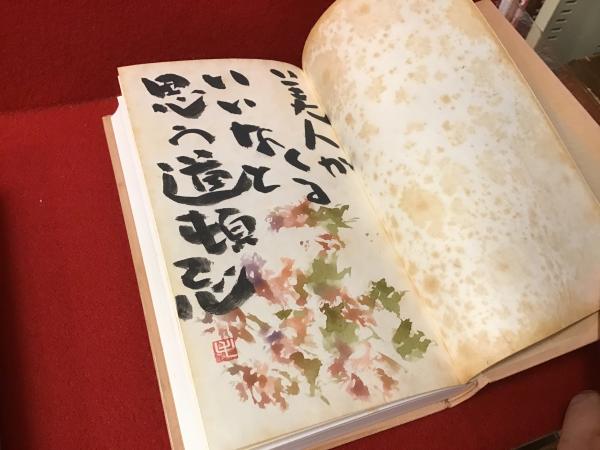 美人がくる
いいなと
思う道頓堀